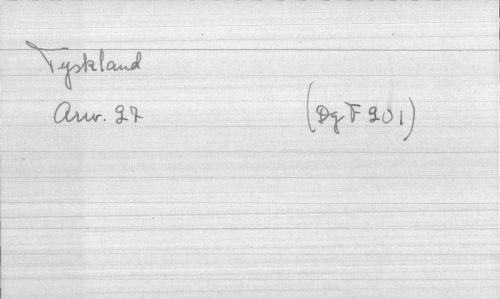 Tyskland
Arw. 27 (Dg F 201)